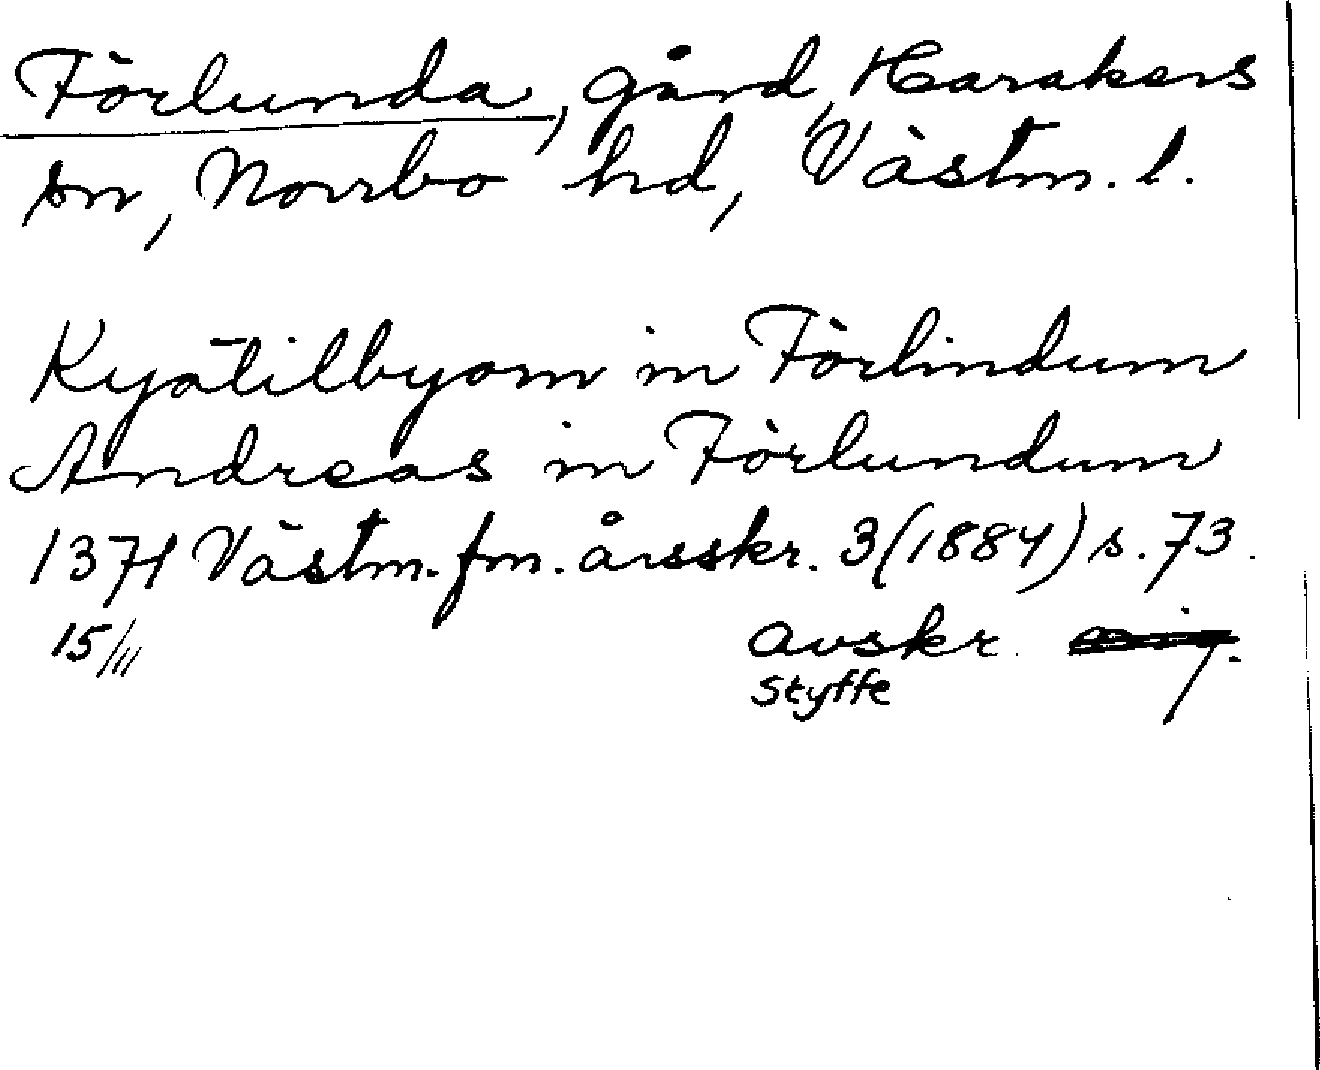 Förlunda, gård, Harakers
sn, Norrbo hd, Västm. l.
Kyätilbyorn in Förlindum
Andreas in Förlundum
1371 Västm. fm. årsskr. 3 (1884) s. 73.
15/III avskr.
Styffe